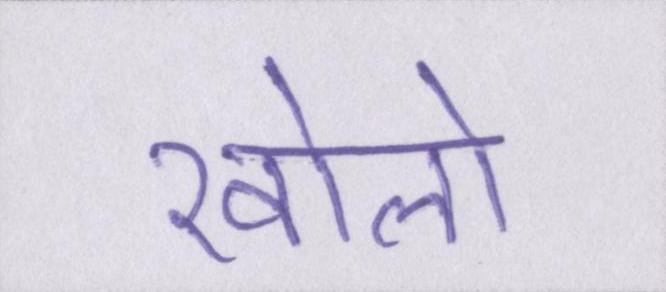 खोलो